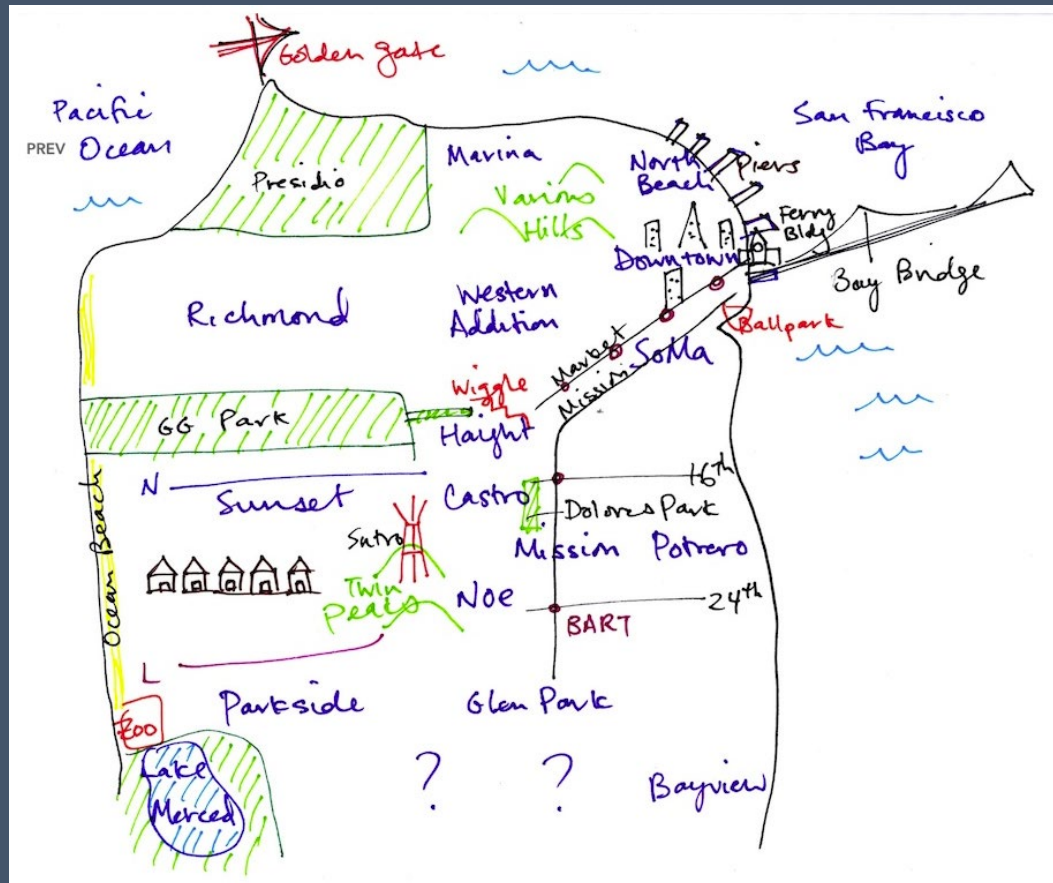 Golden gate
Pacific
Ocean
PREV
San Francisco
Bay
Presidio
Marina
North
Beach
Piers
Various
Hills
Ferry
Bldg
Downtown
Bay Bridge
Richmond
Western
Addition
Ballpark
Market
SoMa
Mission
Wiggle
GG Park
Height
N
Sunset
Castro
16th
Dolores Park
Ocean Beach
Sutro
Mission
Potrero
Twin
Peaks
Noe
24th
BART
L
Parkside
Glen Park
Zoo
Lake
Merced
?
?
Bayview